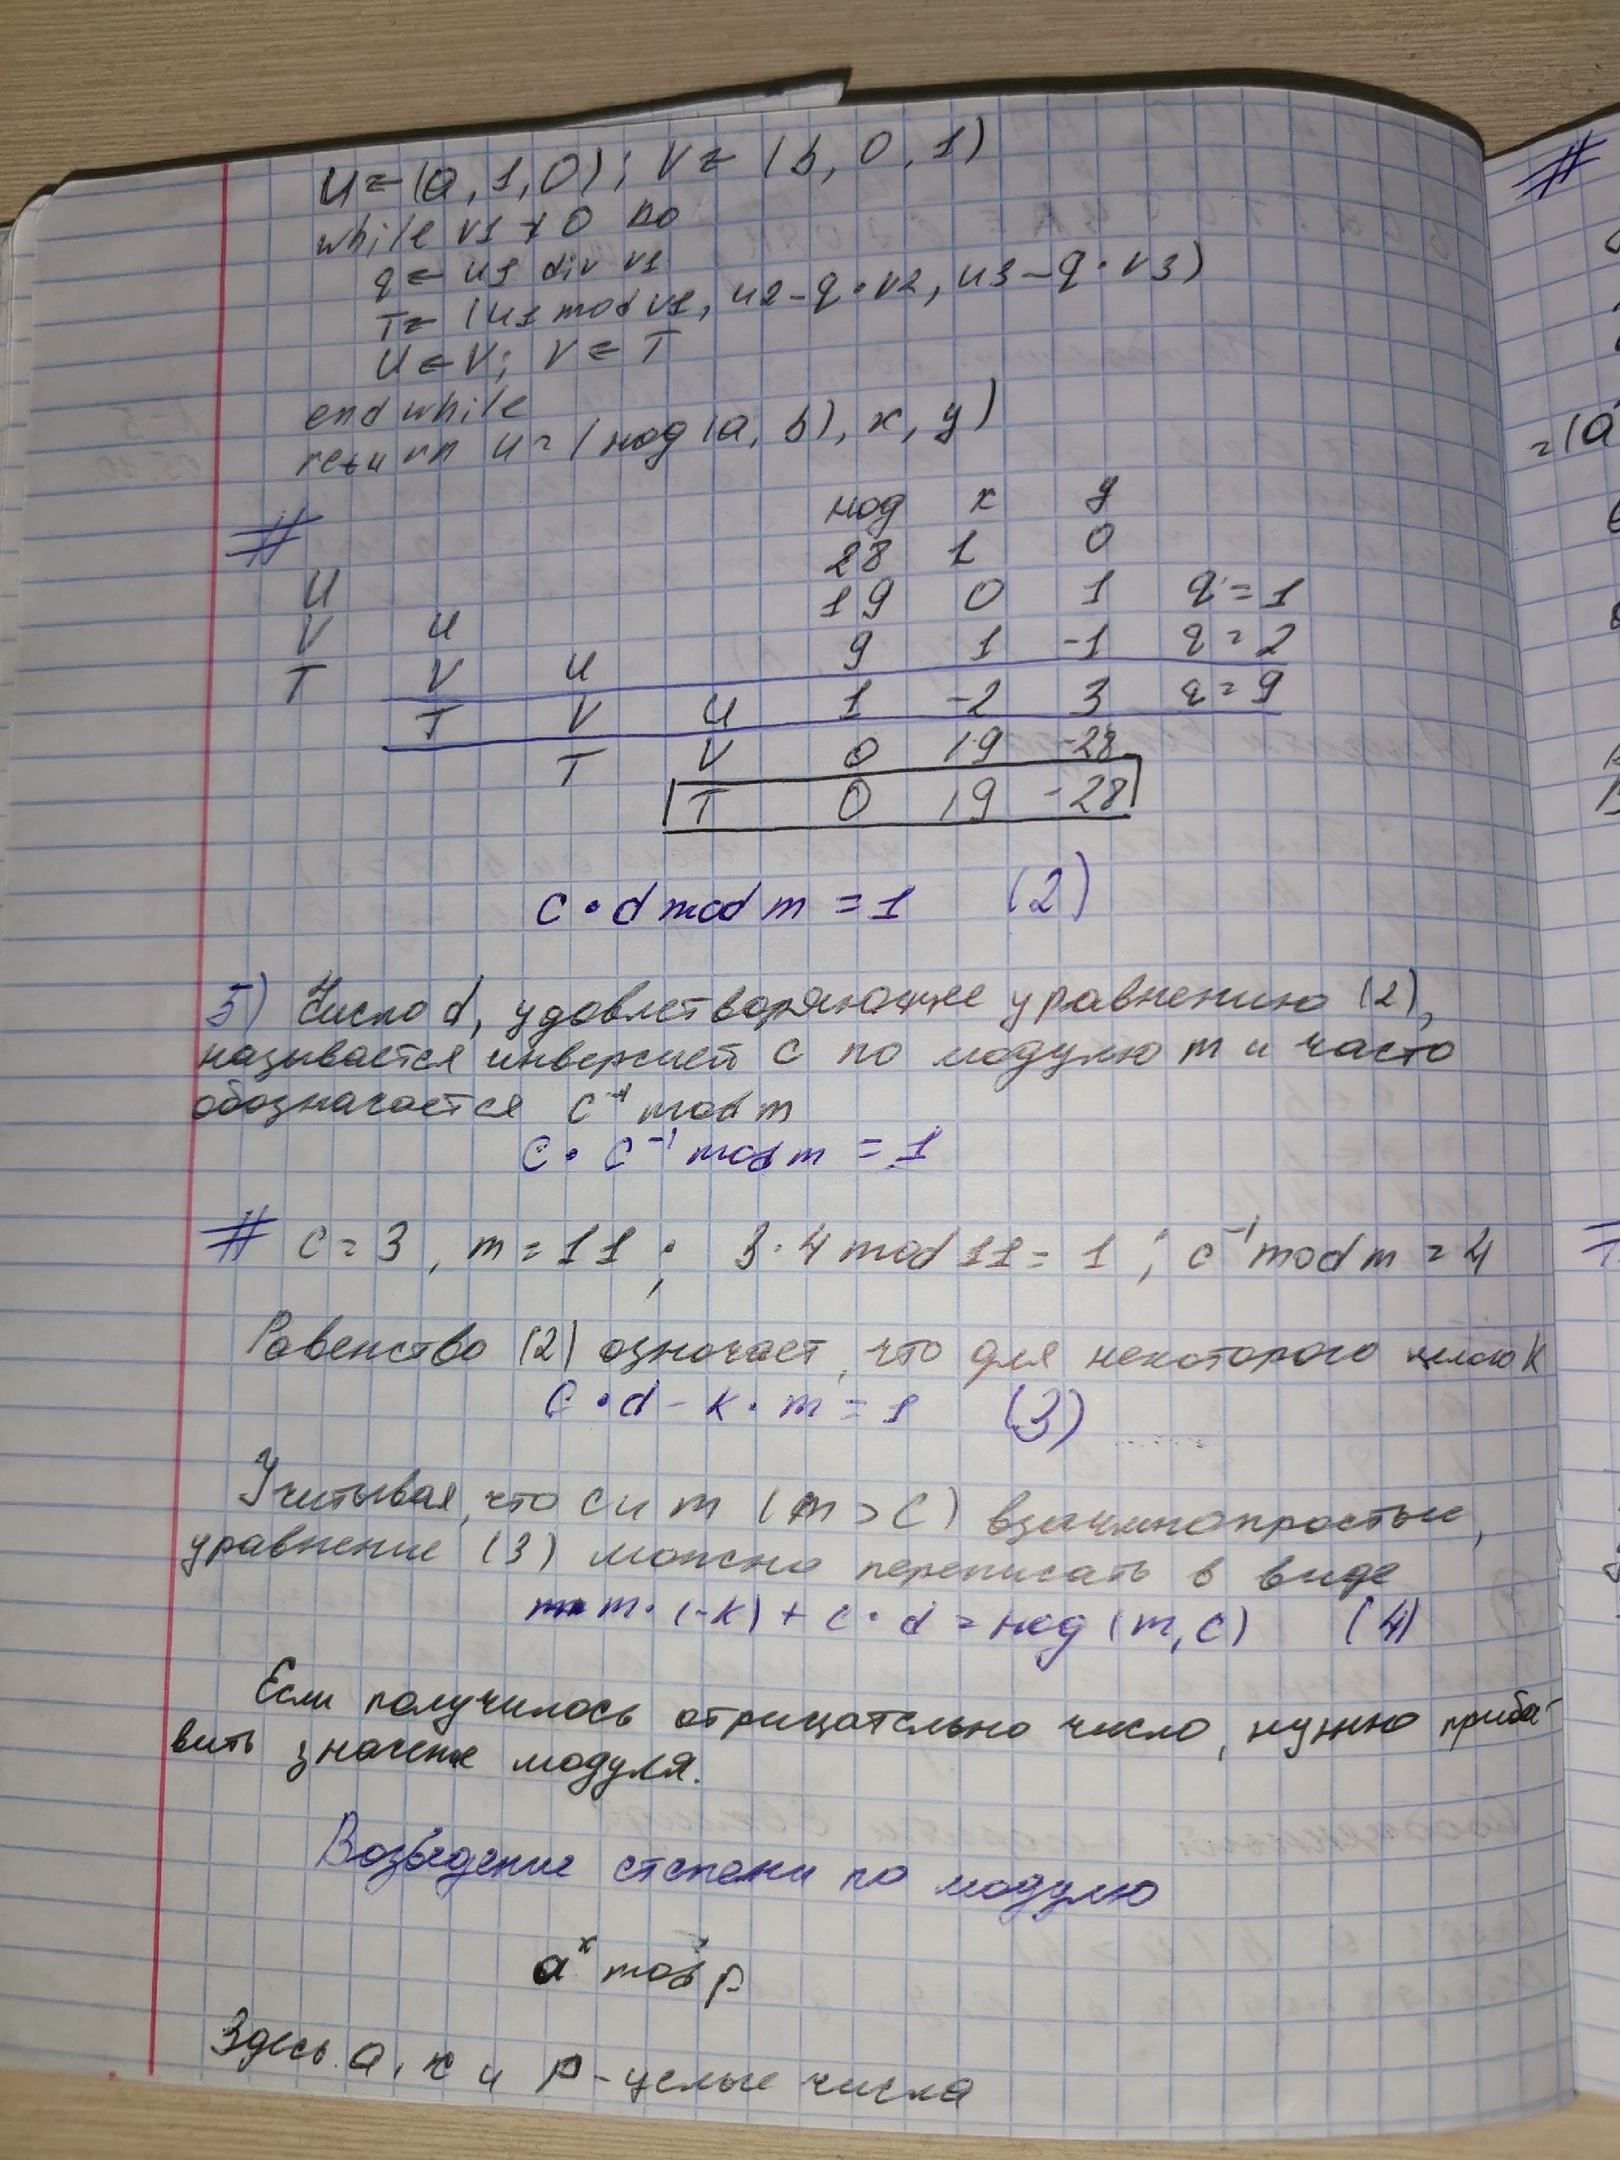 U ← (a, 1, 0); V ← (b, 0, 1)
while v1 ≠ 0 do
q ← u1 div v1
T ← (u1 mod v1, u2 - q • v2, u3 - q • v3)
U ← V; V ← T
end while
return U = (нод (a, b), x, y)
# нод x y
28 1 0
U 19 0 1 q = 1
V U 9 1 -1 q = 2
T V U 1 -2 3 q = 9
T V U 0 19 -28
T V 0 19 -28
T
c • d mod m = 1 (2)
5) Число d, удовлетворяющее уравнению (2),
называется инверсией c по модулю m и часто
обозначается c⁻¹ mod m
c • c⁻¹ mod m = 1
# c = 3, m = 11; 3 · 4 mod 11 = 1; c⁻¹ mod m = 4
Равенство (2) означает, что для некоторого целого k
c • d - k • m = 1 (3)
Учитывая, что c и m (m > c) взаимнопростые,
уравнение (3) можно переписать в виде
m • (-k) + c • d = нод (m, c) (4)
Если получилось отрицательно число, нужно приба-
вить значение модуля.
Возведение степени по модулю
aˣ mod p
Здесь a, x и p - целые числа
# 
= (a